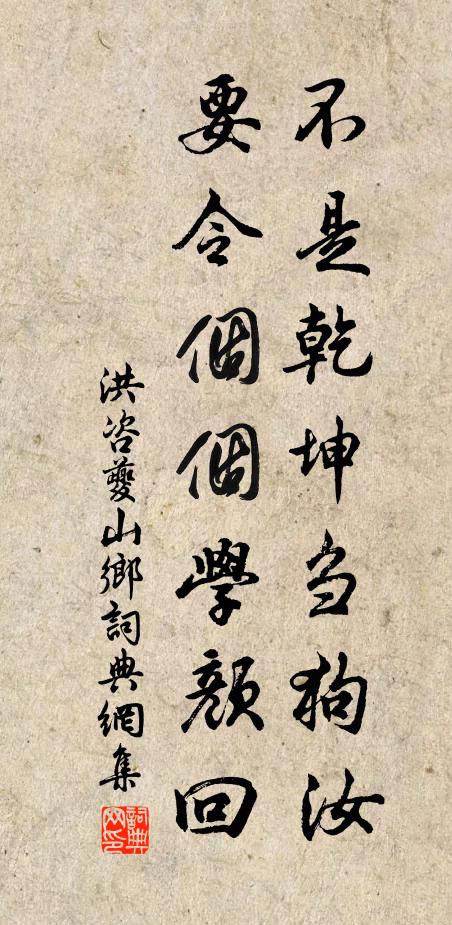 不是乾坤刍狗汝
要令個個學顏回
洪咨夔山鄉詞典網集
詞典网印